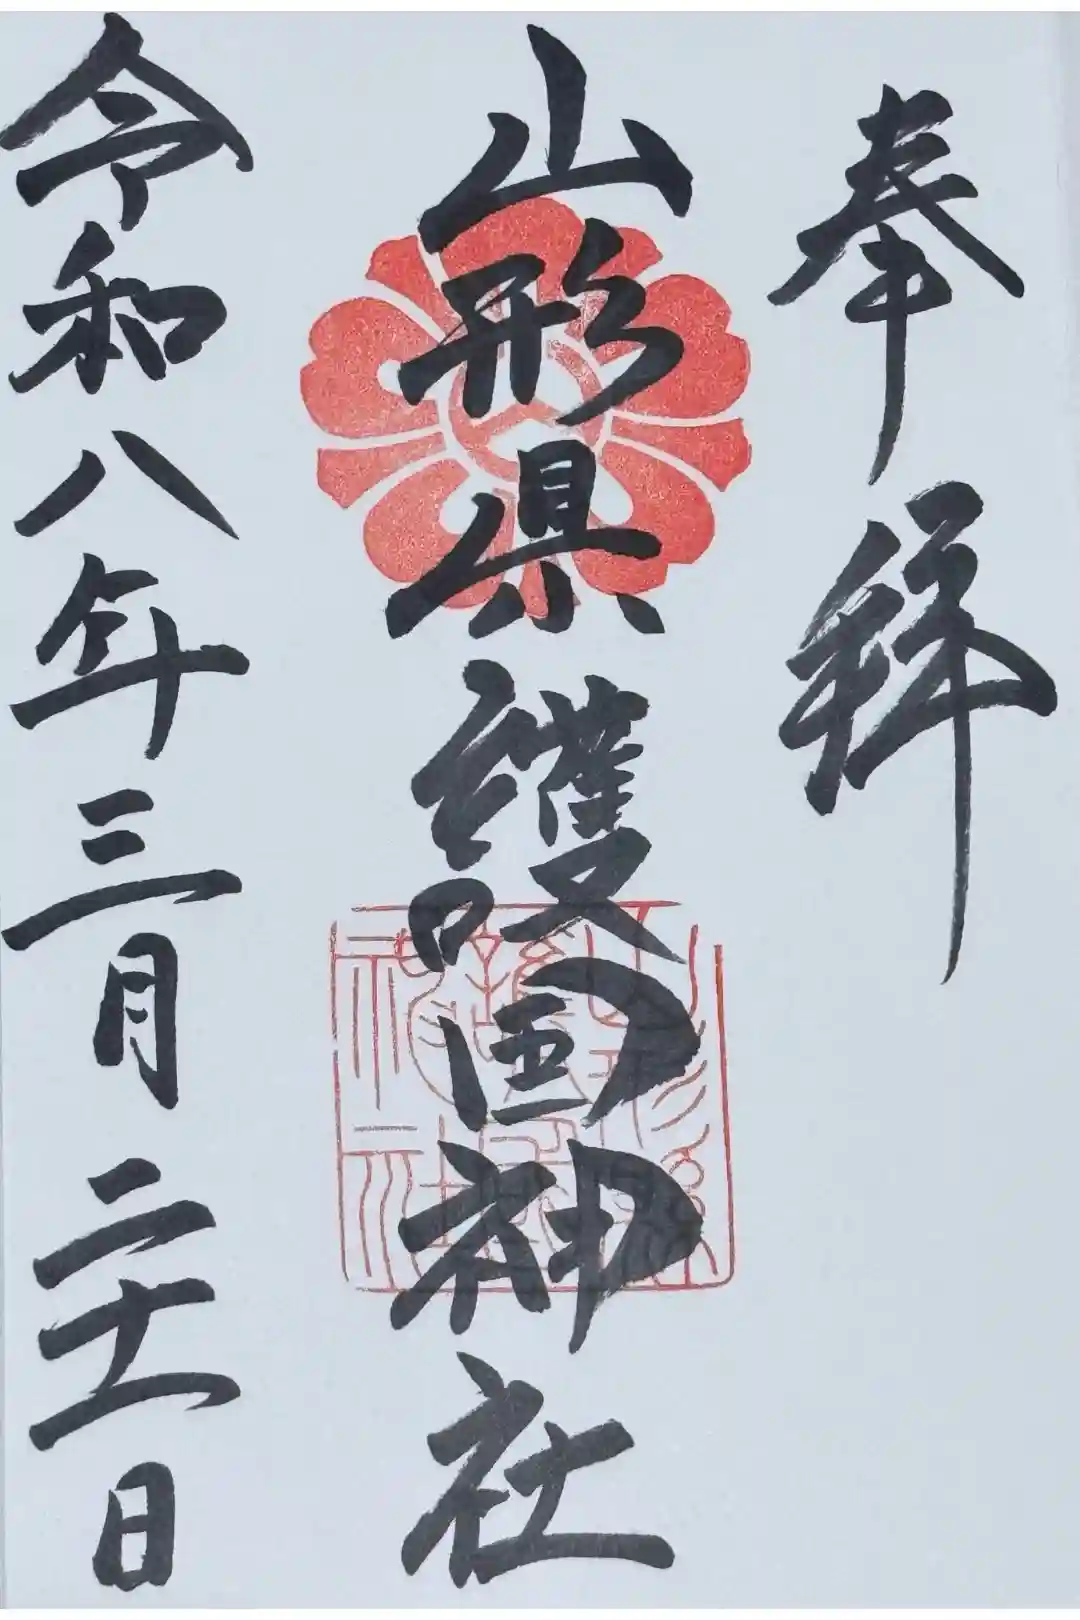 奉拝
山形県護国神社
令和八年三月二十一日